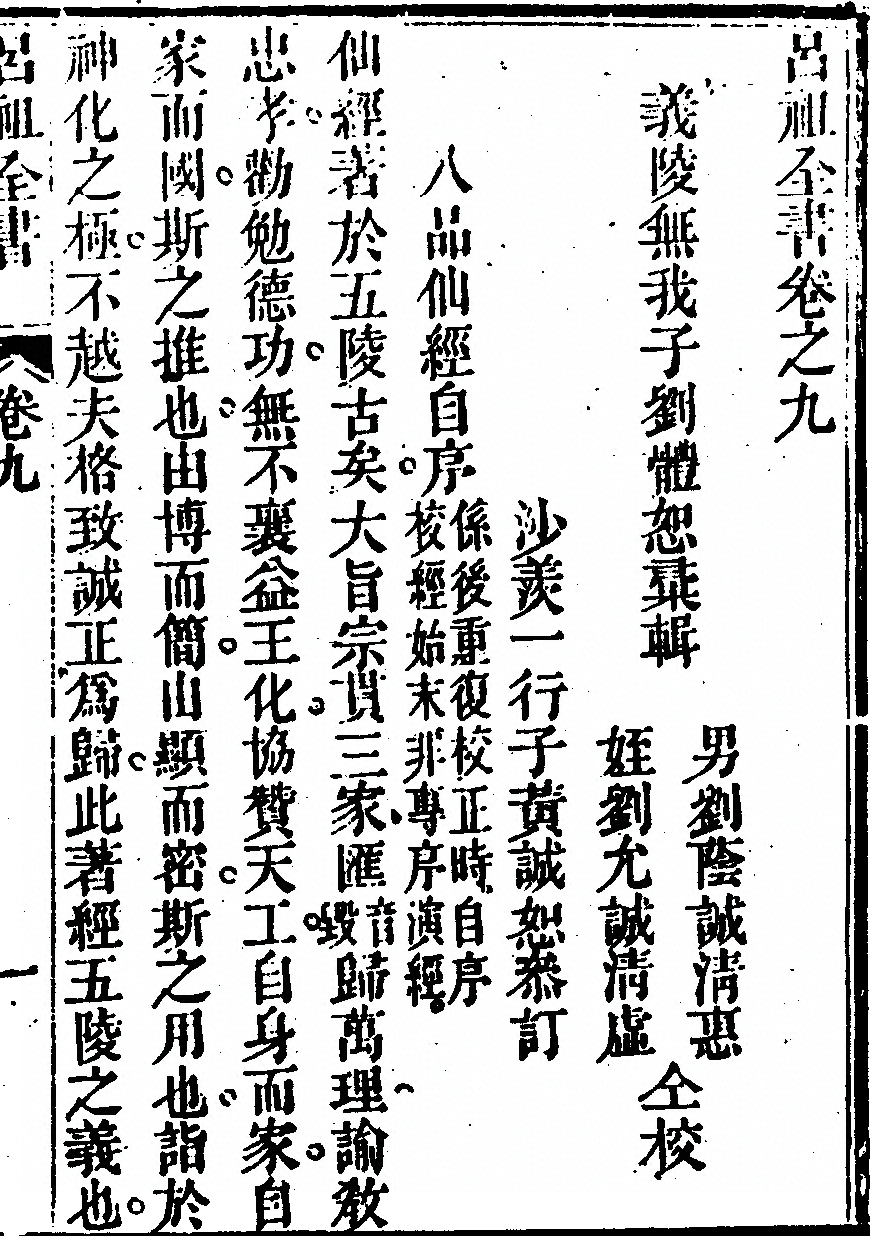 呂祖全書卷之九
義陵無我子劉體恕彙輯
男劉蔭誠清惠
姪劉允誠清虛
仝校
沙羨一行子黃誠恕叅訂
八品仙經自序
係後重復校正時自序
校經始末非專序演經
仙經著於五陵古矣大旨宗貫三家匯音毀歸萬理諭敎
忠孝勸勉德功無不襄益王化協贊天工自身而家自
家而國斯之推也由博而簡由顯而密斯之用也詣於
神化之極不越夫格致誠正爲歸此著經五陵之義也
呂祖全書
卷九
一